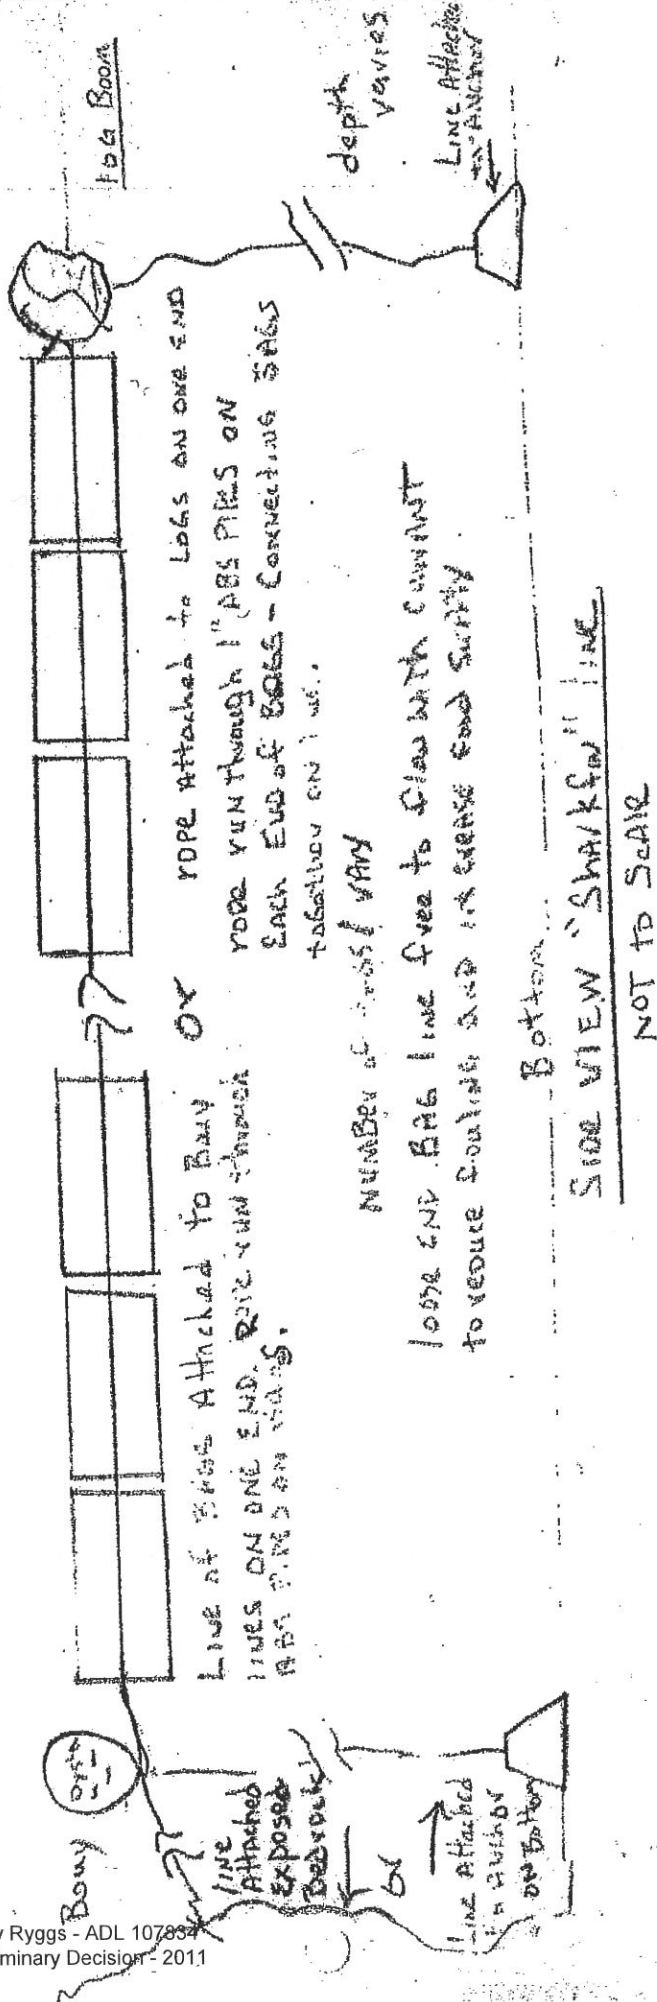 LOG BOOM
depth
varies
LINE Attached
to ANCHOR
rope Attached to LOGS ON ONE END
rope run through 1" ABS PIPES ON
EACH END of BAGS - Connecting BAGS
together on line.
or
Line of BAGS Attached to Bouy
lines ON ONE END. Rope run through
ABS PIPES ON
NUMBER of VARY
loose END BAG line free to flow with current
to reduce fouling and increase food supply.
Bottom
SIDE VIEW "Sharkfin" line
NOT to SCALE
Bouy
LINE
Attached
Exposed
Bedrock
or
Line Attached
Anchor
ON Bottom
y Ryggs - ADL 107834
minary Decision - 2011